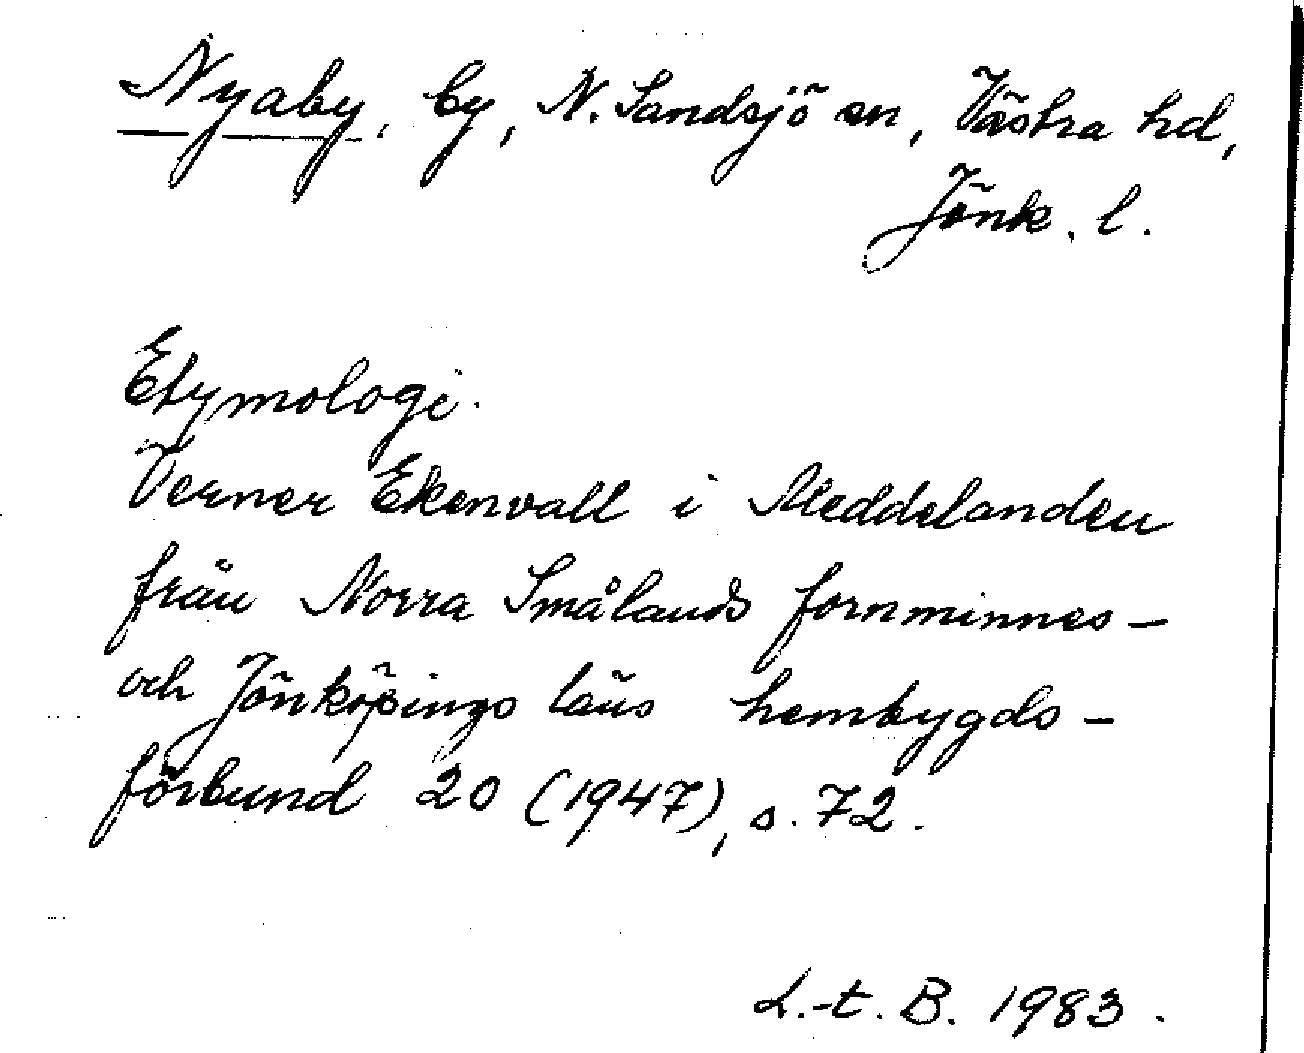 Nyaby, by, N. Sandsjö sn, Västra hd,
Jönk. l.
Etymologi.
Verner Ekenvall i Meddelanden
från Norra Smålands fornminnes-
och Jönköpings läns hembygds-
förbund 20 (1947), s. 72.
L.-t. B. 1983.